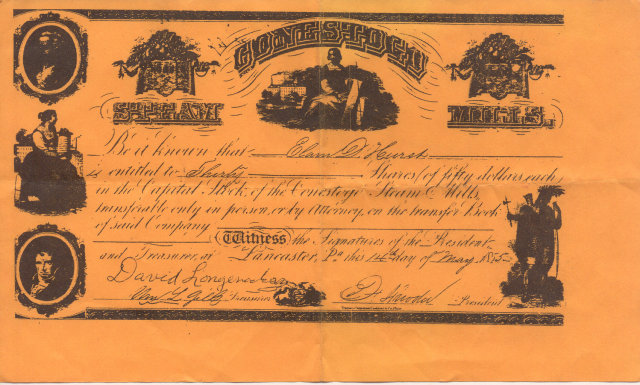 CONESTOGO
STEAM MILLS.
Be it known that Elam D. Hurst
is entitled to Thirty Shares of fifty dollars each
in the Capital Stock of the Conestogo Steam Mills
transferable only in person, or by Attorney, on the transfer Book
of said Company
Witness the Signatures of the President
and Treasurer at Lancaster, Pa this day of May
David Longenecker
Treasurer President